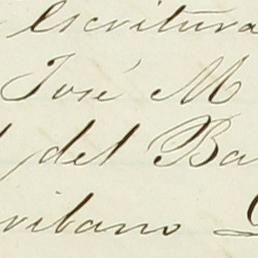 Escritura
José M
del Ba
ribano